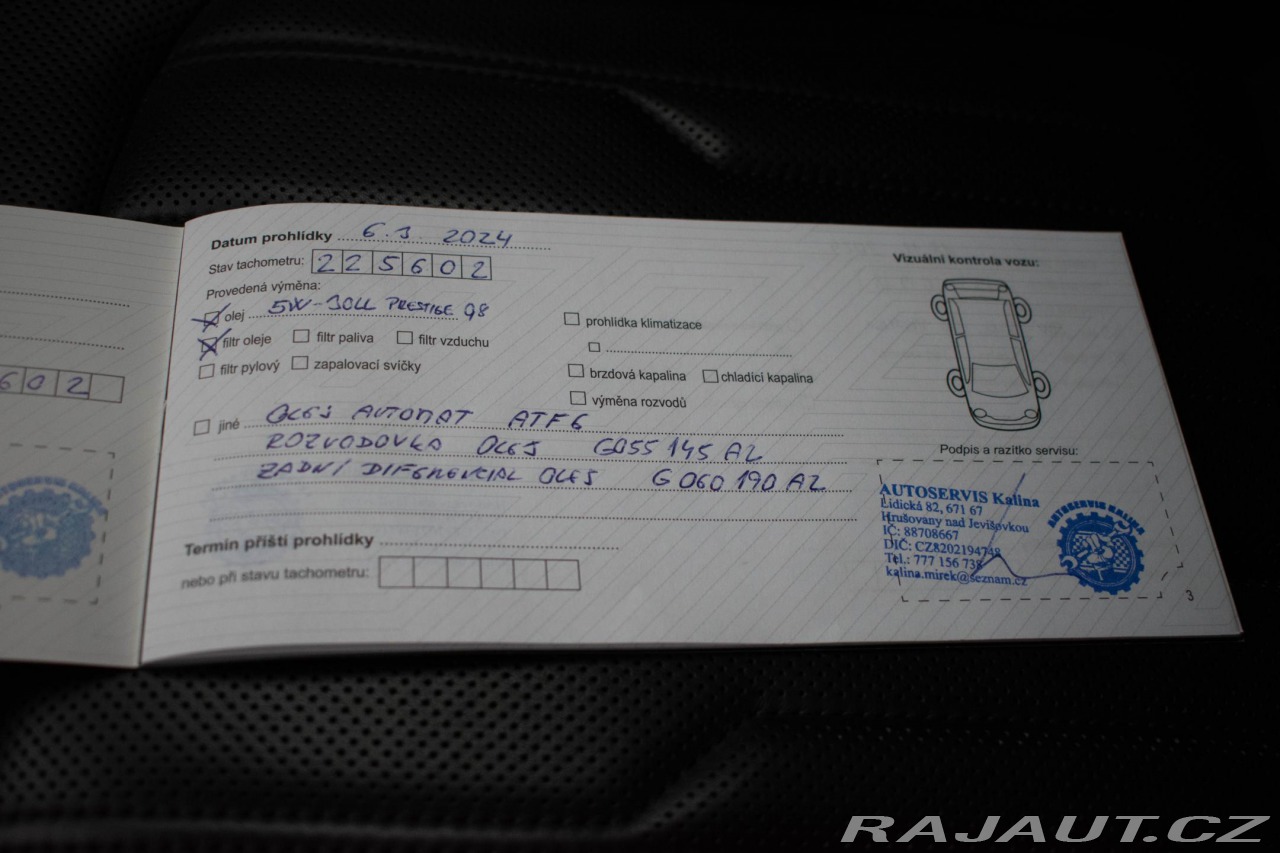 Datum prohlídky 6.3. 2024
Stav tachometru: 225602
Provedená výměna:
olej 5W-30LL PRESTIGE Q8
filtr oleje filtr paliva filtr vzduchu
filtr pylový zapalovací svíčky
prohlídka klimatizace
brzdová kapalina chladící kapalina
výměna rozvodů
jiné OLEJ AUTOMAT ATF6
ROZVODOVKA OLEJ G055 145 A2
ZADNÍ DIFERENCIAL OLEJ G 060 190 A2
Termín příští prohlídky
nebo při stavu tachometru:
Vizuální kontrola vozu:
Podpis a razítko servisu:
AUTOSERVIS Kalina
Lidická 82, 671 67
Hrušovany nad Jevišovkou
IČ: 88708667
DIČ: CZ8202194748
Tel.: 777 156 738
kalina.mirek@seznam.cz
AUTOSERVIS KALINA
3
602
RAJAUT.CZ